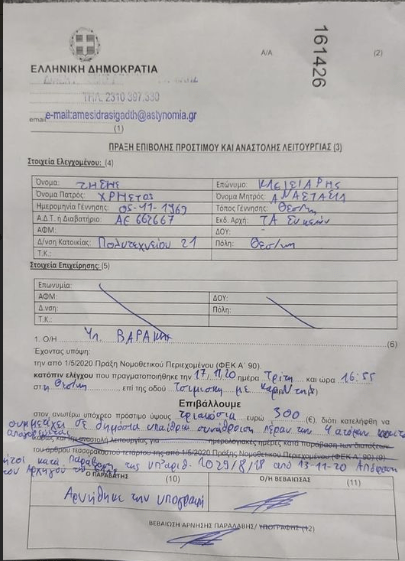 161426
Α/Α (2)
ΕΛΛΗΝΙΚΗ ΔΗΜΟΚΡΑΤΙΑ
ΤΗΛ. 2310.387.330
email e-mail:amesidrasigadth@astynomia.gr
(1)
ΠΡΑΞΗ ΕΠΙΒΟΛΗΣ ΠΡΟΣΤΙΜΟΥ ΚΑΙ ΑΝΑΣΤΟΛΗΣ ΛΕΙΤΟΥΡΓΙΑΣ (3)
Στοιχεία Ελεγχομένου: (4)
Όνομα: ΖΗΣΗΣ Επώνυμο: ΚΛΕΙΣΙΑΡΗΣ
Όνομα Πατρός: ΧΡΗΣΤΟΣ Όνομα Μητρός: ΑΝΑΣΤΑΣΙΑ
Ημερομηνία Γέννησης: 05-11-1969 Τόπος Γέννησης: Θεσ/νικη
Α.Δ.Τ. ή Διαβατήριο: ΑΕ 662667 Εκδ. Αρχή: ΤΑ Συκεών
ΑΦΜ: ΔΟΥ:
Δ/νση Κατοικίας: Πολυτεχνείου 21 Πόλη: Θεσ/νικη
Τ.Κ.:
Στοιχεία Επιχείρησης: (5)
Επωνυμία:
ΑΦΜ: ΔΟΥ:
Δ.νση: Πόλη:
Τ.Κ.:
1. Ο/Η Υπ. (6)
Έχοντας υπόψη:
την από 1/5/2020 Πράξη Νομοθετικού Περιεχομένου (ΦΕΚ Α΄ 90)
κατόπιν ελέγχου που πραγματοποιήθηκε την 17/11/20 ημέρα Τρίτη και ώρα 16:55
στη Θεσ/νικη επί της οδού Τσιμισκή με
Επιβάλλουμε
στον ανωτέρω υπόχρεο πρόστιμο ύψους τριακόσια ευρώ 300 (€), διότι κατελήφθη να
συμμετέχει σε δημόσια υπαίθρια συνάθροιση πέραν των 4 ατόμων
απαγορεύεται
του άρθρου της από 1/5/2020 Πράξης Νομοθετικού Περιεχομένου (ΦΕΚ Α΄ 90) (9)
ήτοι κατά παράβαση της υπ'αριθ. 1029/8/18 από 13-11-20 Απόφαση
του Αρχηγού
Ο ΠΑΡΑΒΑΤΗΣ (10) Ο/Η ΒΕΒΑΙΩΣΑΣ (11)
Αρνήθηκε την υπογραφή
ΒΕΒΑΙΩΣΗ ΑΡΝΗΣΗΣ ΠΑΡΑΛΑΒΗΣ/ ΥΠΟΓΡΑΦΗΣ (12)